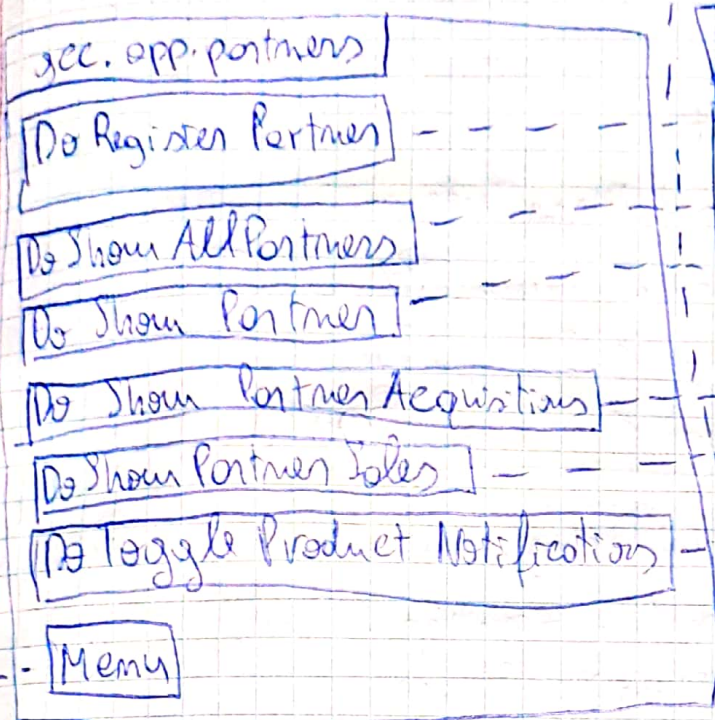 gcc.app.partners
Do Register Partner
Do Show All Partners
Do Show Partner
Do Show Partner Acquisitions
Do Show Partner Sales
Do Toggle Product Notifications
Menu